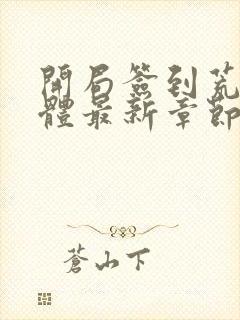 開局簽到荒
體最新章節
蒼山下